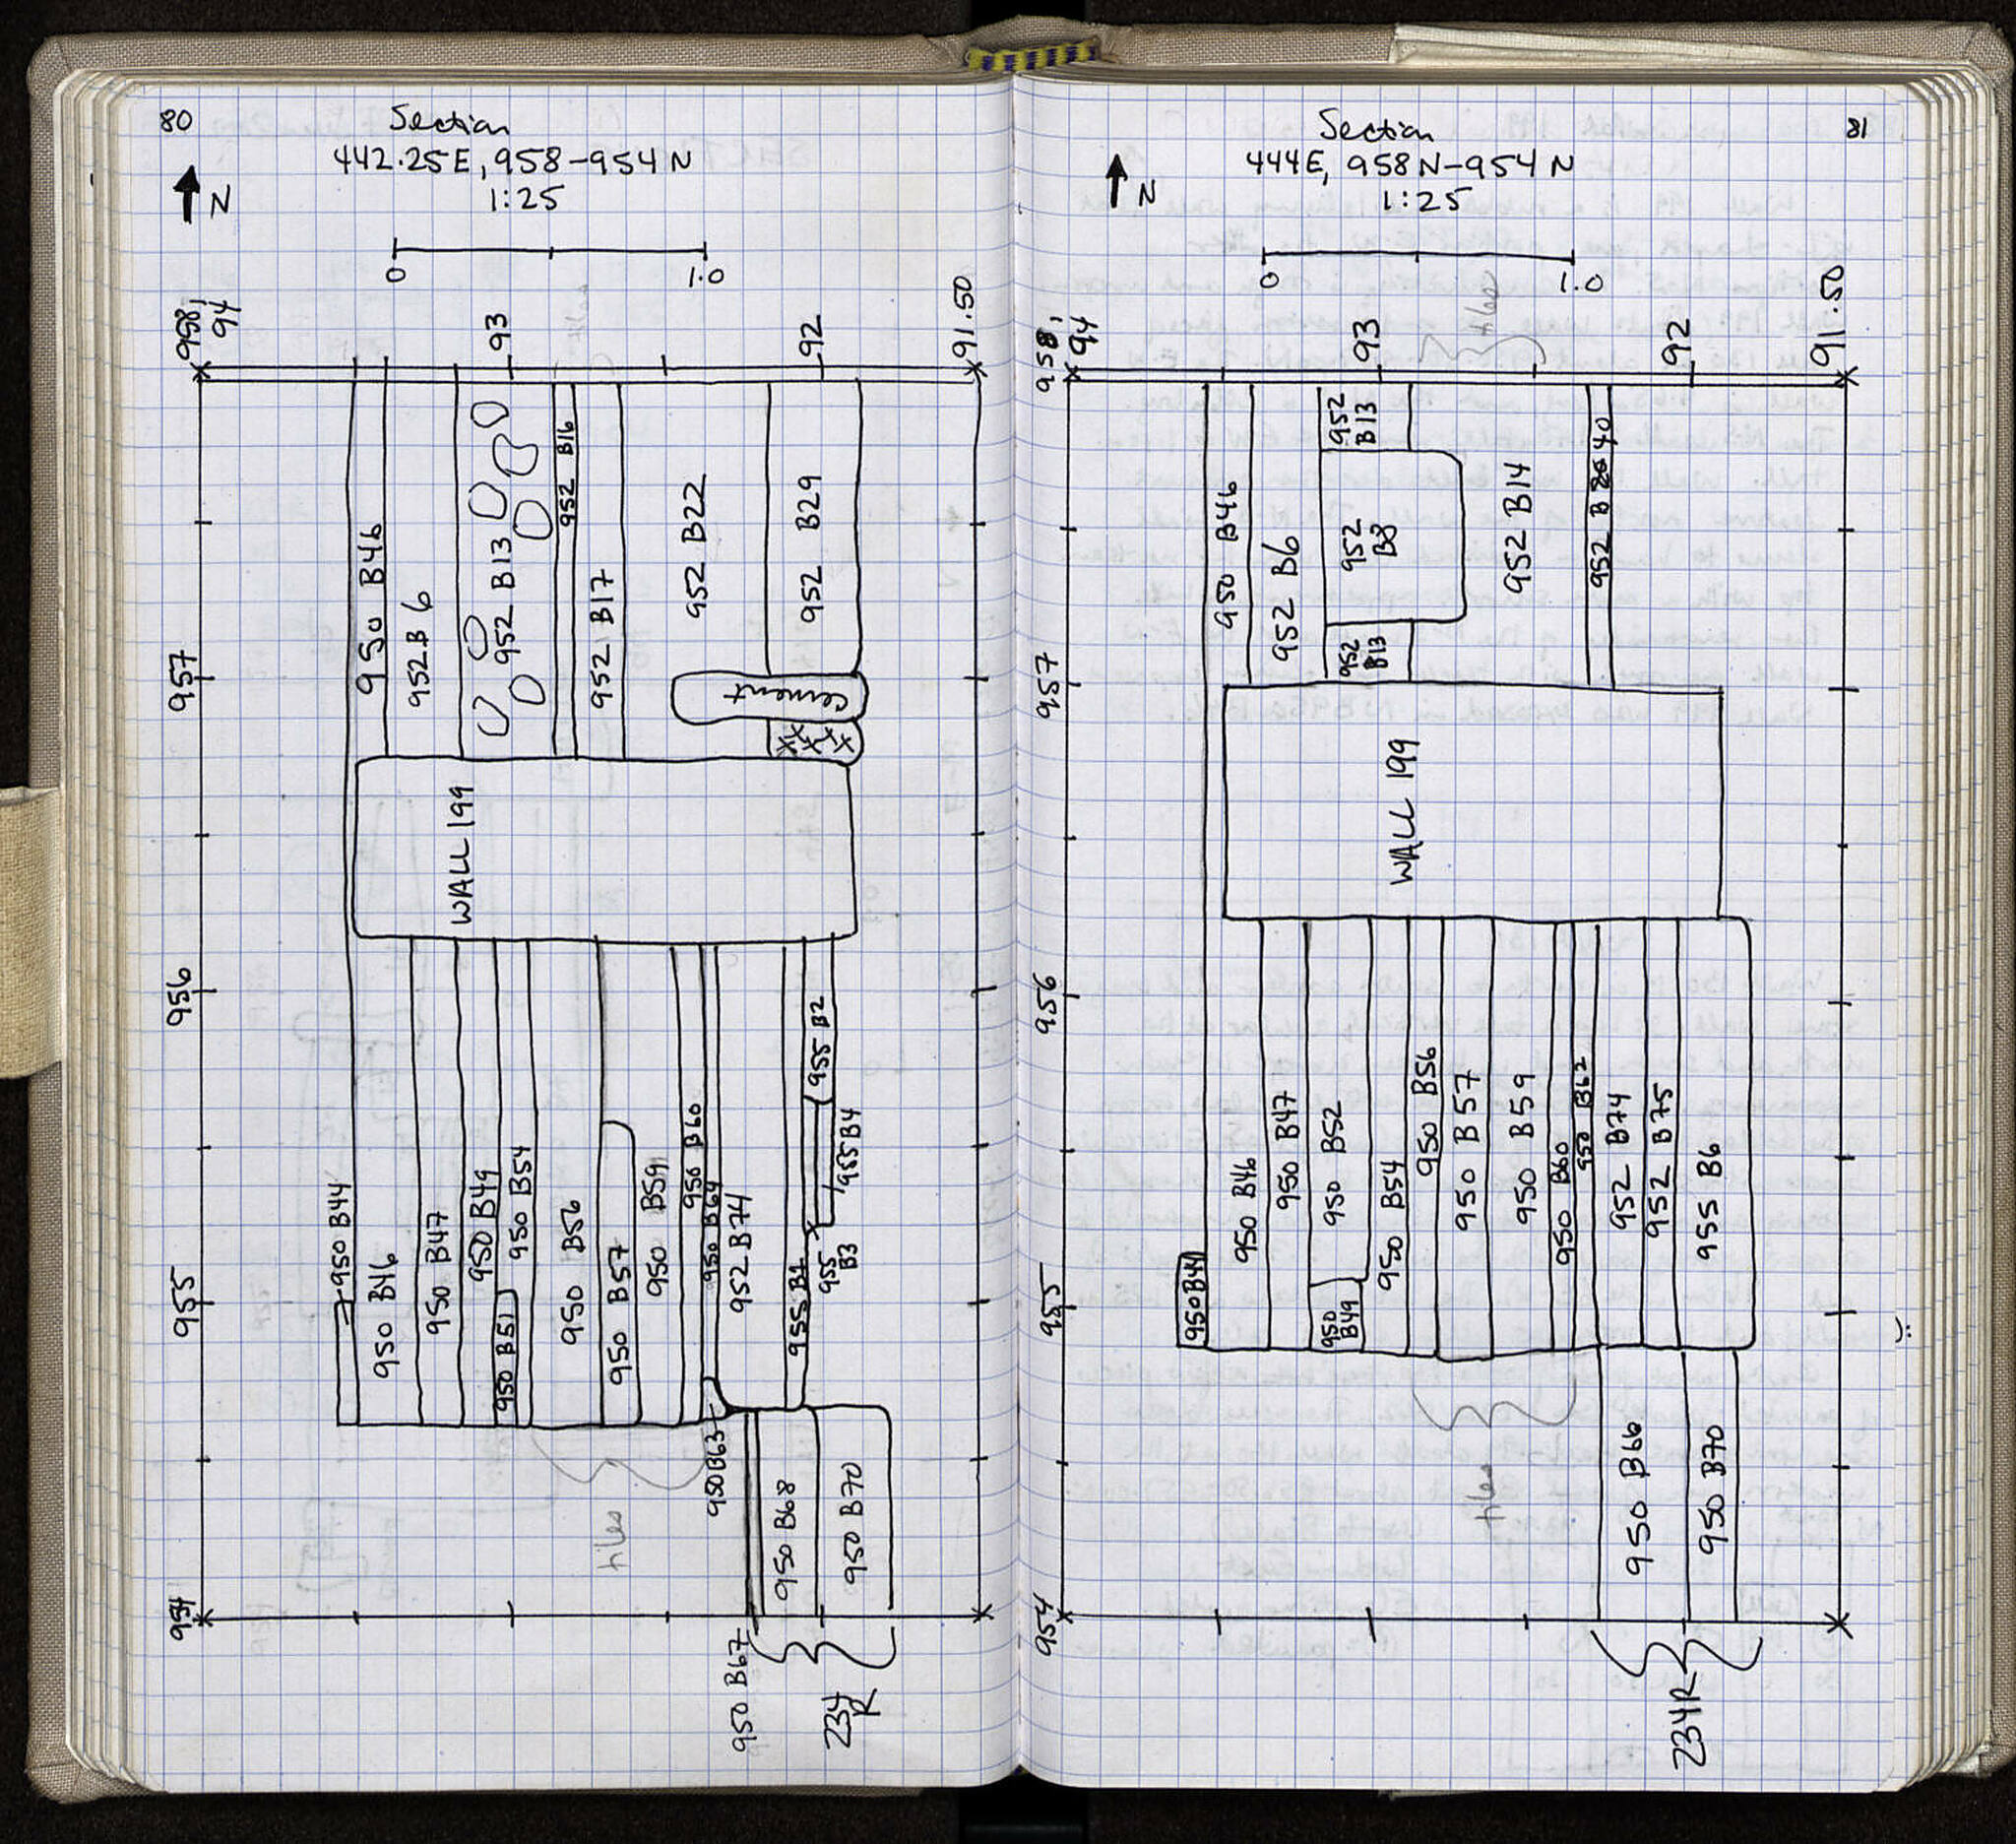 80
Section
442.25E, 958-954N
1:25
N
0
1.0
958,
94
93
92
91.50
957
956
955
954
950 B46
952 B 6
952 B13
952 B16
952 B17
952 B22
952 B29
cement
WALL 199
950 B44
950 B46
950 B47
950 B49
950 B51
950 B54
950 B56
950 B57
950 B59
950 B60
950 B64
952 B74
955 B1
955 B2
955
B3
955 B4
950 B63
tiles
950 B67
950 B68
950 B70
234
R
81
Section
444E, 958N-954N
1:25
N
0
1.0
tiles
958,
94
93
92
91.50
957
956
955
954
950 B46
952 B6
952
B13
952
B8
952
B13
952 B14
952 B 40
WALL 199
950 B44
950 B46
950 B47
950 B52
950
B49
950 B54
950 B56
950 B57
950 B59
950 B60
950 B62
952 B74
952 B75
955 B6
tiles
950 B66
950 B70
234R